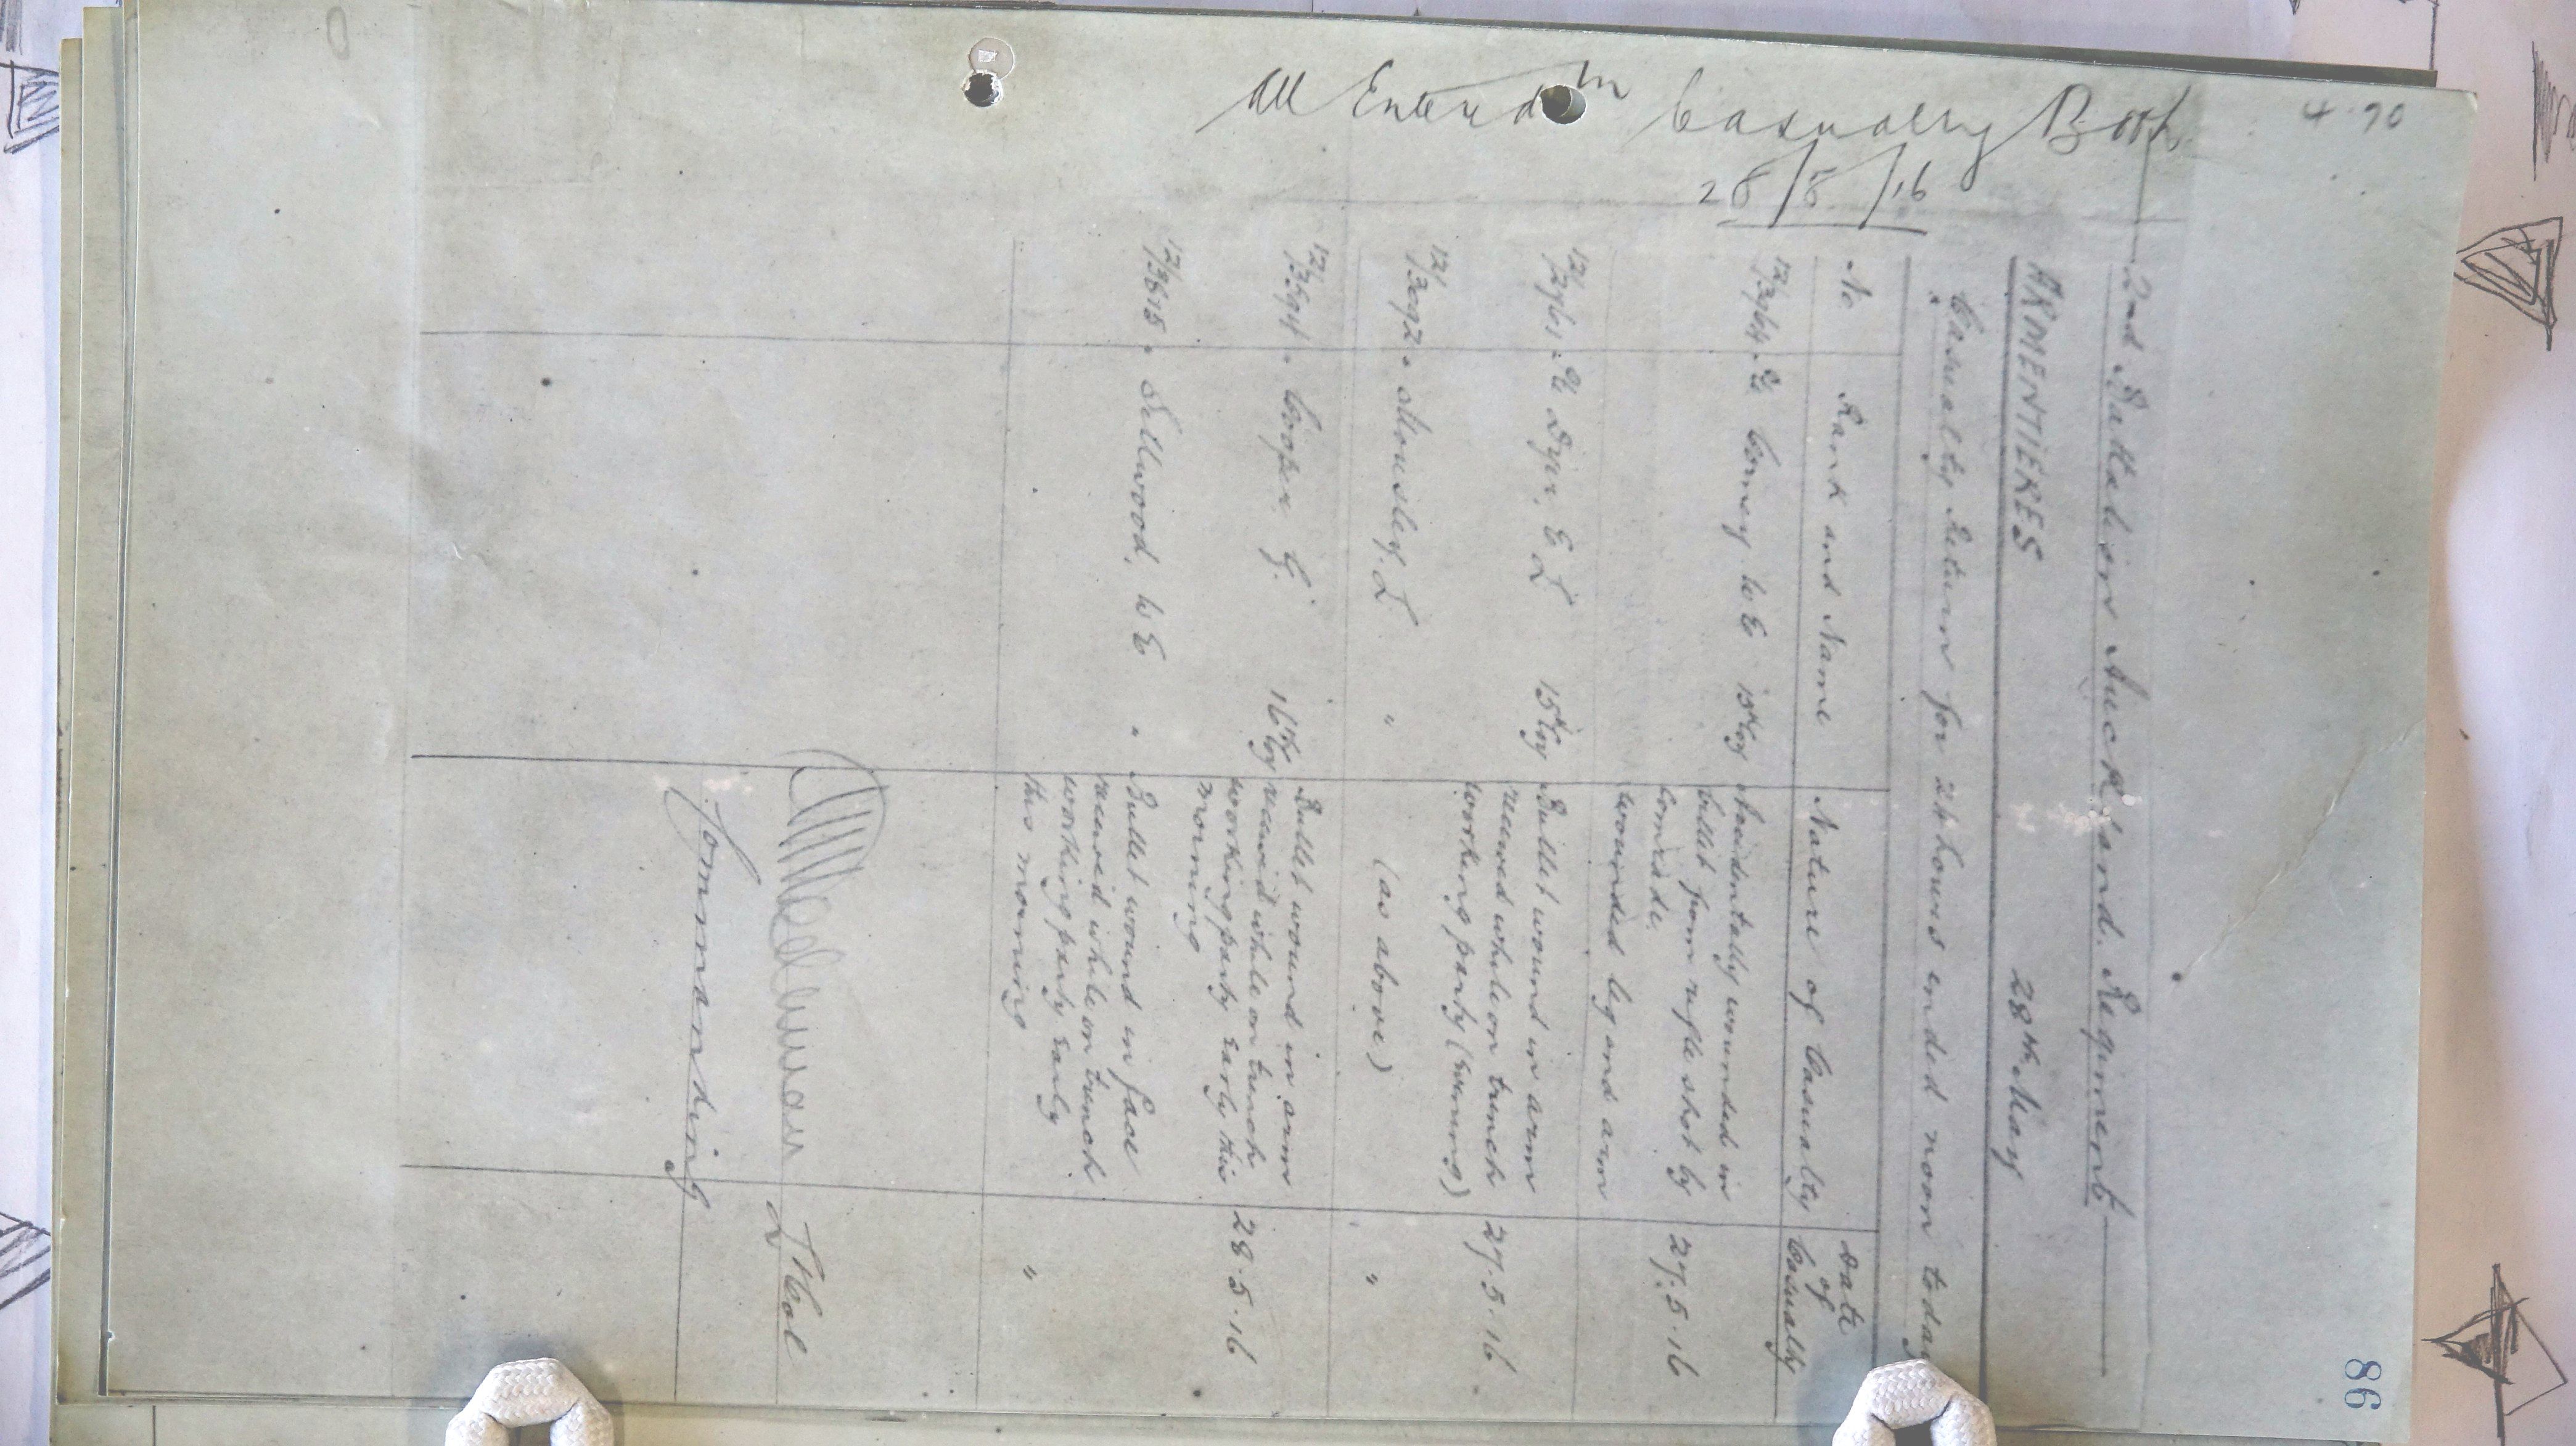 4.70
86
All Entered in Casualty Book
28/5/16
2nd Battalion Auckland Regiment
ARMENTIERES 28th May
Casualty Return for 24 hours ended noon today
No Rank and Name Nature of Casualty Date of Casualty
12/3964 Pte Comey W E 15th Coy Accidentally wounded in
billet from rifle shot by
comrade.
wounded leg and arm 27.5.16
12/3961 Pte Dyer, E L 15th Coy Bullet wound in arm
received while on trench
working party (evening) 27.5.16
12/3092 " Mousley. L " (as above) "
12/3594 " Cooper G. 16th Coy Bullet wound in arm
received while on trench
working party early this
morning 28.5.16
12/3615 " Sellwood, W E " Bullet wound in face
received while on trench
working party early
this morning "
Lt Col
Commanding